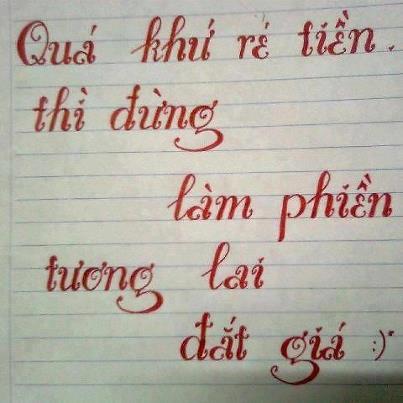 Quá khứ rẻ tiền.
thì đừng
làm phiền
tương lai
đắt giá :)